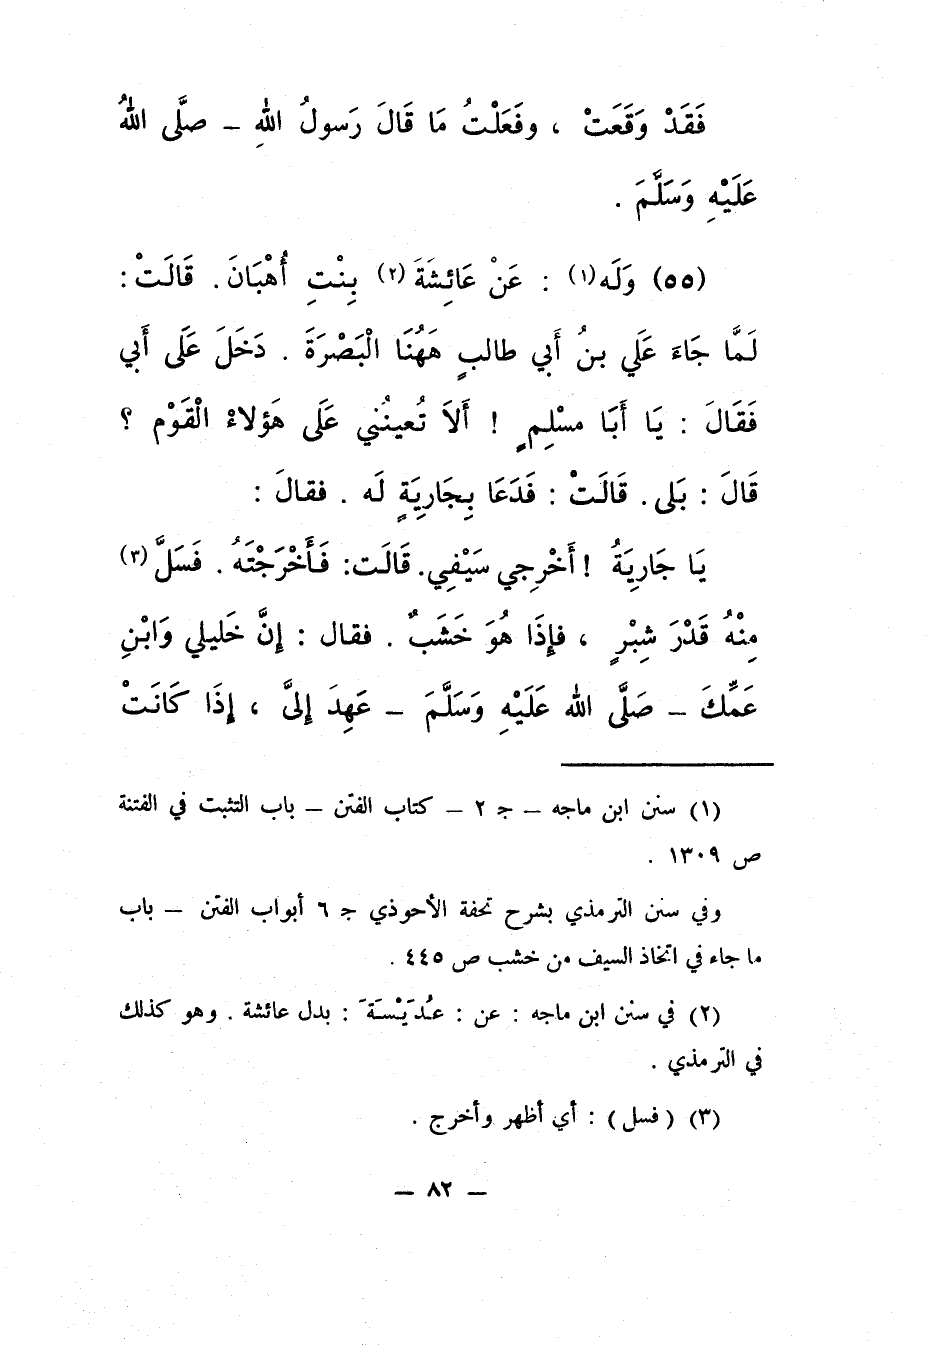 فَقَدْ وَقَعَتْ ، وفَعَلْتُ مَا قَالَ رَسولُ اللهِ – صلَّى اللهُ
عَلَيْهِ وَسَلَّمَ .
(٥٥) وَلَه(١) : عَنْ عَائِشَةَ(٢) بِنْتِ أُهْبَانَ. قَالَتْ :
لَمَّا جَاءَ عَلَي بنُ أَبي طالبٍ هَهُنَا الْبَصْرَةَ . دَخَلَ عَلَى أَبي
فَقَالَ : يَا أَبَا مسْلِمٍ ! أَلاَ تُعينُني عَلَى هَؤلاءْ الْقَوْم ؟
قَالَ : بَلى. قَالَتْ : فَدَعَا بِجَارِيَةٍ لَه . فقالَ :
يَا جَارِيَةُ ! أَخْرِجي سَيْفِي. قَالَت: فَأَخْرَجْتَهُ . فَسَلَّ(٣)
مِنْهُ قَدْرَ شِبْرٍ ، فإِذَا هُوَ خَشَبٌ . فقال : إِنَّ خَليلي وَابْنِ
عَمِّكَ – صَلَّى الله عَلَيْهِ وَسَلَّمَ – عَهِدَ إِليَّ ، إِذَا كَانَتْ
(١) سنن ابن ماجه – جـ ٢ – كتاب الفتن – باب التثبت في الفتنة
ص ١٣٠٩ .
وفي سنن الترمذي بشرح تحفة الأحوذي جـ ٦ أبواب الفتن – باب
ما جاء في اتخاذ السيف من خشب ص ٤٤٥ .
(٢) في سنن ابن ماجه : عن : عُدَيْسَةَ : بدل عائشة . وهو كذلك
في الترمذي .
(٣) (فسل) : أي أظهر وأخرج .
– ٨٢ –